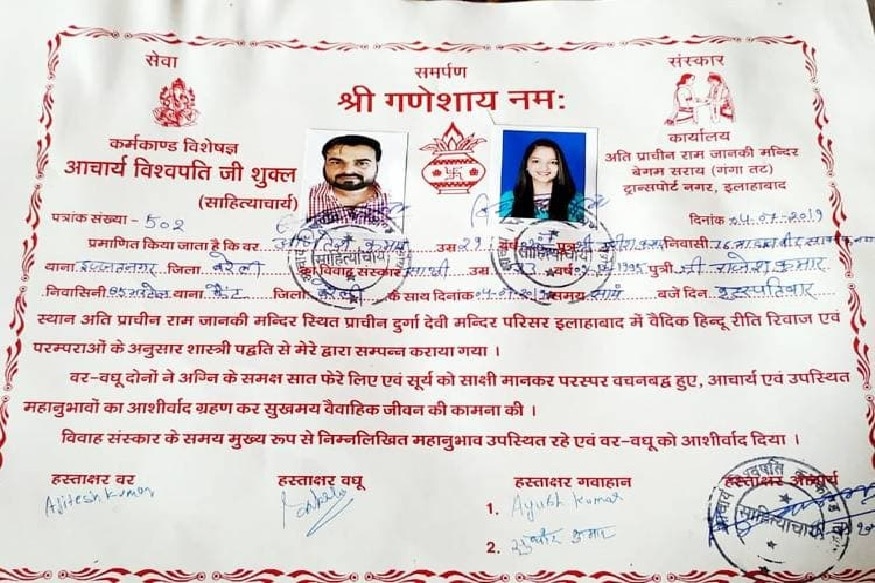 सेवा
समर्पण
संस्कार
श्री गणेशाय नम:
कर्मकाण्ड विशेषज्ञ
आचार्य विश्वपति जी शुक्ल
(साहित्याचार्य)
कार्यालय
अति प्राचीन राम जानकी मन्दिर
बेगम सराय (गंगा तट)
ट्रान्सपोर्ट नगर, इलाहाबाद
पत्रांक संख्या - 502
दिनांक 04.07.2019
प्रमाणित किया जाता है कि वर कुमार उम्र 29 वर्ष निवासी
थाना इज्जतनगर जिला बरेली का विवाह संस्कार साक्षी उम्र वर्ष 1995 पुत्री श्री राजेश कुमार
निवासिनी थाना कैंट जिला बरेली के साथ दिनांक 04.07.2019 समय सायं बजे दिन बृहस्पतिवार
स्थान अति प्राचीन राम जानकी मन्दिर स्थित प्राचीन दुर्गा देवी मन्दिर परिसर इलाहाबाद में वैदिक हिन्दू रीति रिवाज एवं
परम्पराओं के अनुसार शास्त्री पद्वति से मेरे द्वारा सम्पन्न कराया गया ।
वर-वधू दोनों ने अग्नि के समक्ष सात फेरे लिए एवं सूर्य को साक्षी मानकर परस्पर वचनबद्व हुए, आचार्य एवं उपस्थित
महानुभावों का आशीर्वाद ग्रहण कर सुखमय वैवाहिक जीवन की कामना की ।
विवाह संस्कार के समय मुख्य रूप से निम्नलिखित महानुभाव उपस्थित रहे एवं वर-वधू को आशीर्वाद दिया ।
हस्ताक्षर वर
हस्ताक्षर वधू
हस्ताक्षर गवाहान
हस्ताक्षर आचार्य
Ajitesh Kumar
1. Ayush Kumar
2. सुधीर कुमार
साहित्याचार्य
साहित्याचार्य
साहित्याचार्य